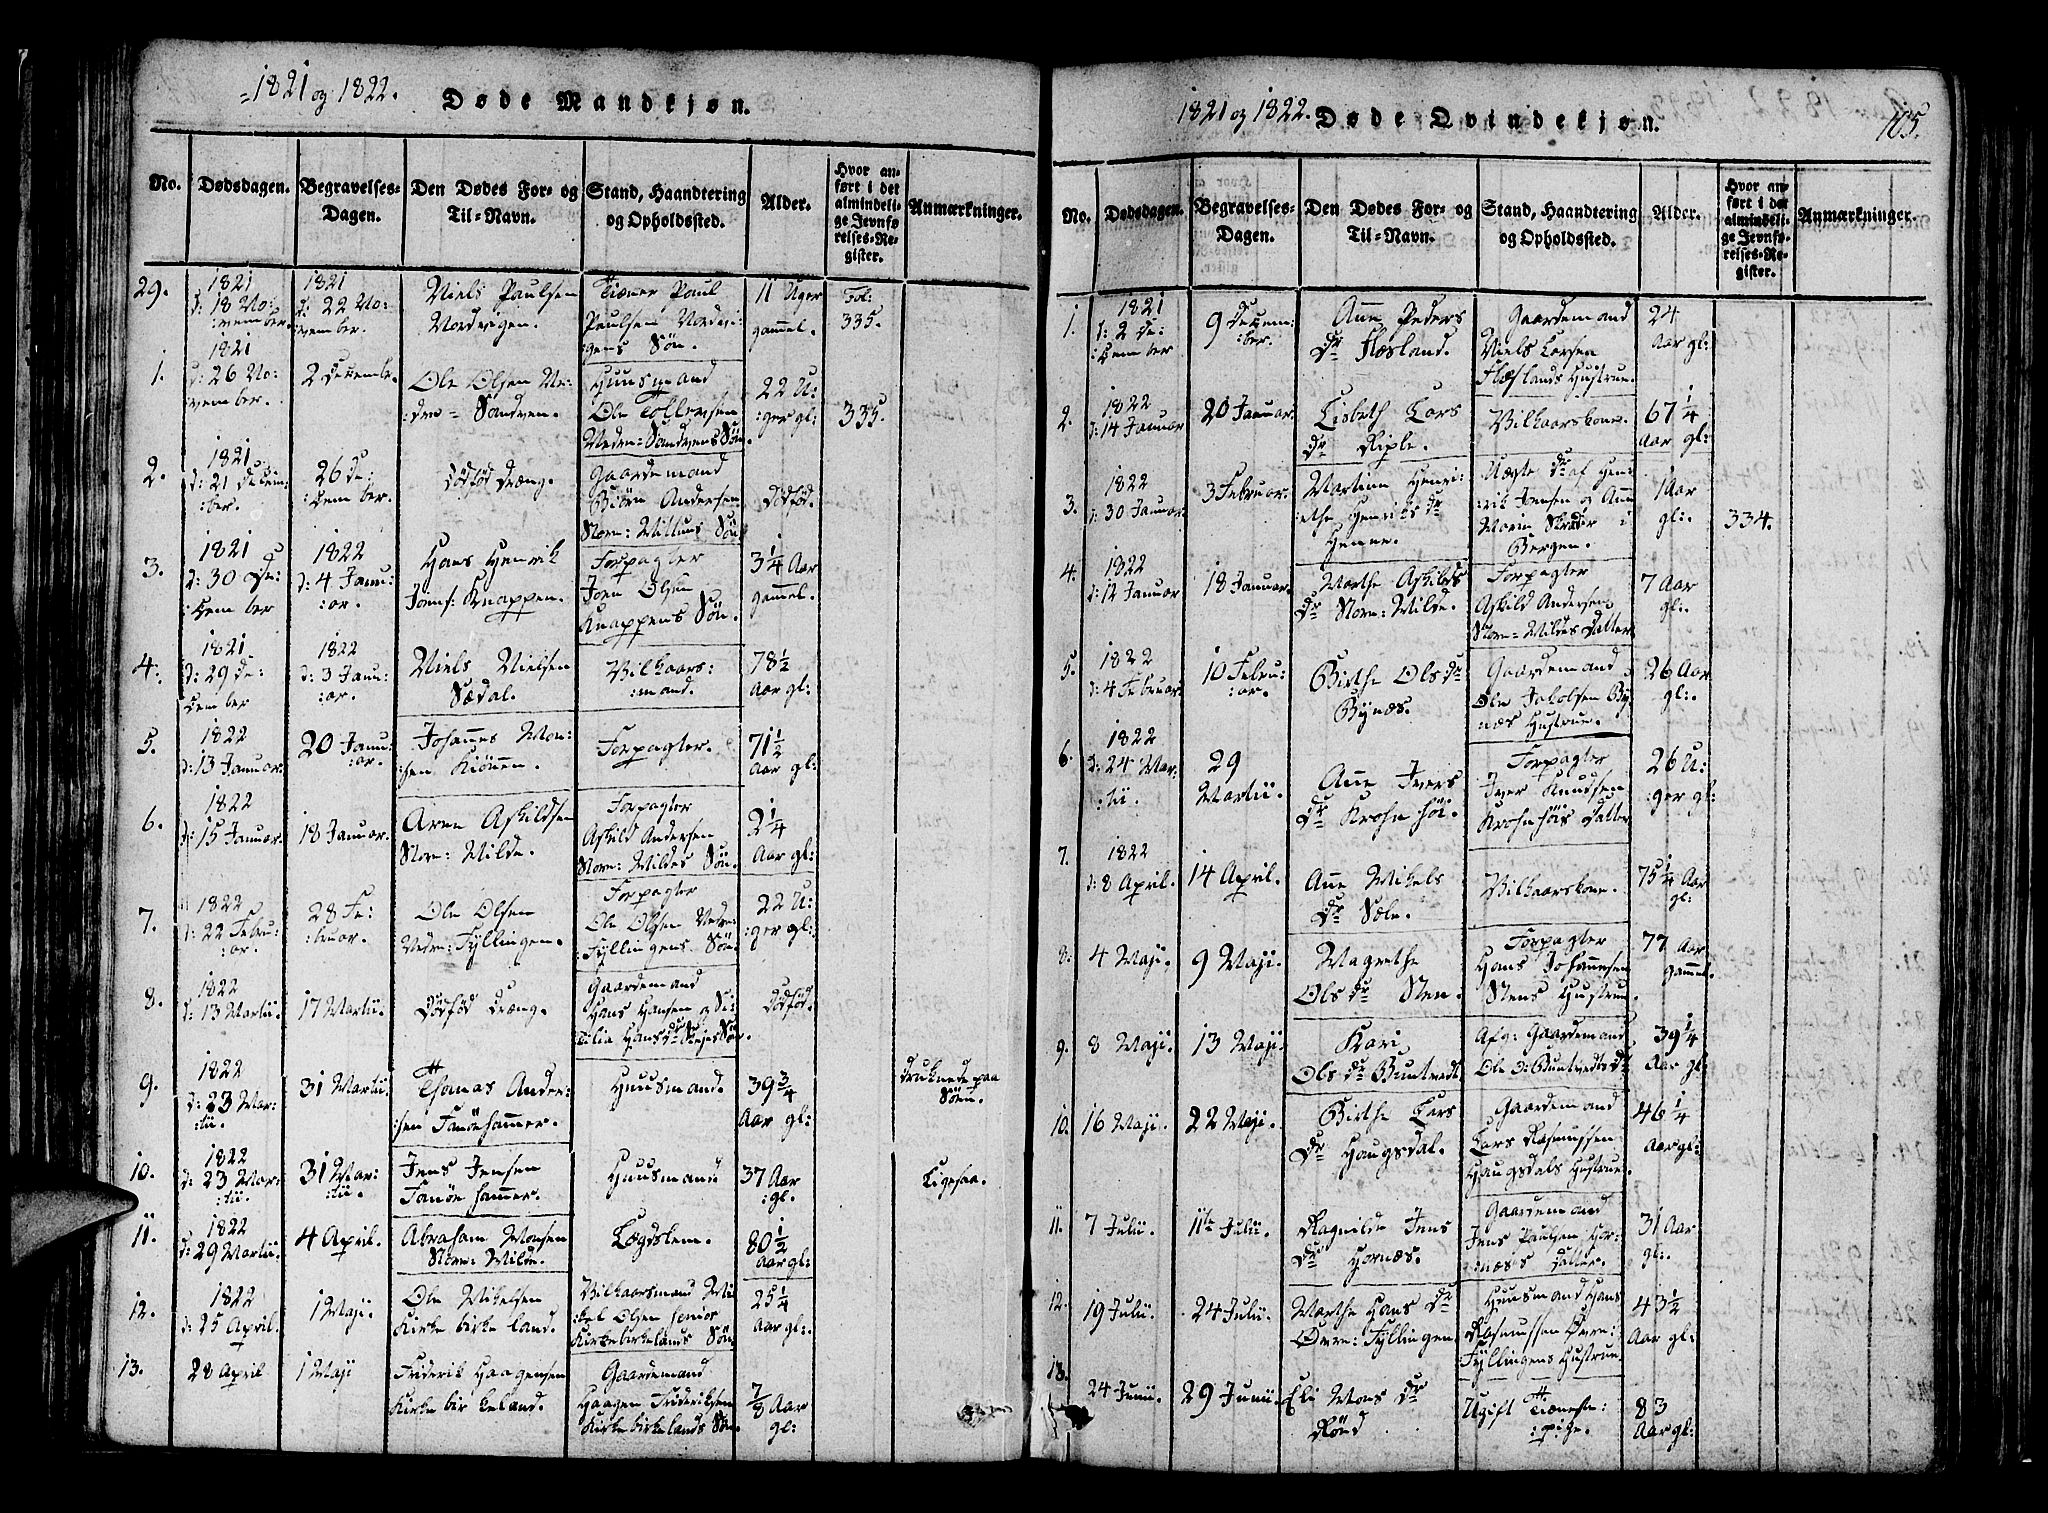 1821 og 1822. Døde Mandkjøn.
No. Dødsdagen. Begravelses-Dagen. Den Dødes For- og Til-Navn. Stand, Haandtering og Opholdssted. Alder. Hvor anført i det almindelige Jevnførelses-Register. Anmærkninger.
29. 1821 d: 18 No:vember. 1821 d: 22 No:vember. Niels Paulsen Nordvigen. Tiener Paul Paulsen Nordvi:gens Søn. 11 Uger gammel. Fol: 335.
1. 1821 d: 26 No:vember. 2 Decembr. Ole Olsen Ne:dre-Sandven. Huusmand Ole Tollevsen Neden-Sandvens Søn. 22 U:ger gl: 335.
2. 1821 d: 21 Decem:ber. 26 De:cember. Dødfød Dræng. Gaardemand Biørn Andersen Store-Millums Søn. Dødfød.
3. 1821 d: 30 De:cember 1822 d: 4 Janu:ar. Hans Henrik Joens: Knappen. Forpagter Joen Olsen Knappens Søn. 3 1/4 Aar gammel.
4. 1821 d: 29 De:cember 1822 d: 3 Janu:ar. Niels Nielsen Sædal. Vilkaars:mand. 78 1/2 Aar gl:
5. 1822 d: 13 Januar. 20 Janu:ar. Johannes Mon:sen Kiønen. Forpagter. 71 1/2 Aar gl:
6. 1822 d: 15 Januar. 18 Januar. Arne Askildsen Store-Milde. Forpagter Askild Andersen Store-Mildes Søn. 2 1/4 Aar gl:
7. 1822 d: 22 Febru:ar. 28 Fe:bruar. Ole Olsen Nedre-Fyllingen. Forpagter Ole Olsen Nedre-Fyllingens Søn. 22 U:ger gl:
8. 1822 d: 13 Martii. 17 Martii. Dødfød Dræng. Gaardemand Hans Hansen og Hans dr Søn. Dødfød.
9. 1822 d: 23 Mar:tii. 31 Martii. Thomas Ander:sen Fanøehammer. Huusmand. 39 3/4 Aar gl: Druknede paa Søen.
10. 1822 d: 23 Mar:tii. 31 Mar:tii. Jens Jensen Fanøehammer. Huusmand 37 Aar gl. Ligesaa.
11. 1822 d: 29 Martii. 4 April. Abraham Monsen Store-Milde. Lægdslem. 80 1/2 Aar gl:
12. 1822 d: 25 April. 1 Maji. Ole Mikelsen Kirkebirkeland. Vilkaarsmand Mi:kel Olsen senior Kirkebirkelands Søn. 25 1/4 Aar gl:
13. 28 April 1 Maji Friderik Haagensen Kirkebirkeland. Gaardemand Haagen Frideriksen Kirkebirkelands Søn. 7/8 Aar gl:
1821 og 1822. Døde Qvindekjøn. 105.
No. Dødsdagen. Begravelses-Dagen. Den Dødes For- og Til-Navn. Stand, Haandtering og Opholdssted. Alder. Hvor anført i det almindelige Jevnførelses-Register. Anmærkninger.
1. 1821 d: 2 De:cember 9 Decem:ber. Anne Peders Dr Flæsland. Gaardemand Niels Larsen Flæslands Hustrue. 24 Aar gl:
2. 1822 d: 14 Januar 20 Januar. Lisbeth Lars dr Riple. Vilkaarskone. 67 1/4 Aar gl:
3. 1822 d: 30 Januar. 3 Februar. Martina Henri:ethe Henriks dr Henne. Uægte dr af Hen:rik Jensen og Anne Marie i Bergen. 1 Aar gl: 334.
4. 1822 d: 12 Januar 18 Januar. Marthe Askilds Dr Store-Milde. Forpagter Askild Andersen Store-Mildes Datter. 7 Aar gl:
5. 1822 d: 4 Februar. 10 Febru:ar. Birthe Ols dr Bynæs. Gaardemand Ole Jakobsen By:næs Hustrue. 26 Aar gl:
6. 1822 d: 24 Mar:tii. 29 Martii. Anne Ivers Dr Krohnhøi. Forpagter Iver Knudsen Krohnhøis Datter 26 U:ger gl:
7. 1822 d: 8 April. 14 April. Anne Mikels Dr Sæle. Vilkaarskone. 75 1/4 Aar gl:
8. 4 Maji. 9 Maji. Magrethe Ols dr Steen. Forpagter Hans Johannesen Steens Hustrue. 77 Aar gammel.
9. 8 Maji. 13 Maji. Kari Ols dr Buntvedt Afg: Gaardemand Ole O: Buntvedts Dr 39 1/4 Aar gl:
10. 16 Maji. 22 Maji. Birthe Lars Dr Haugsdal. Gaardemand Lars Rasmussen Haugsdals Hustrue. 46 1/4 Aar gl:
11. 7 Julii. 11te Julii. Ragnilde Jens Dr Hornæs. Gaardemand Jens Paulsen Hor:næses Datter. 31 Aar gl:
12. 19 Julii. 24 Julii. Marthe Hans Dr Øvre-Fyllingen Huusmand Hans Rasmussen Øvre-Fyllingens Hustrue. 43 1/2 Aar gl:
13. 24 Junii. 29 Junii. Eli Mons Dr Rønd Ugift Tieneste:pige. 83 Aar gl: